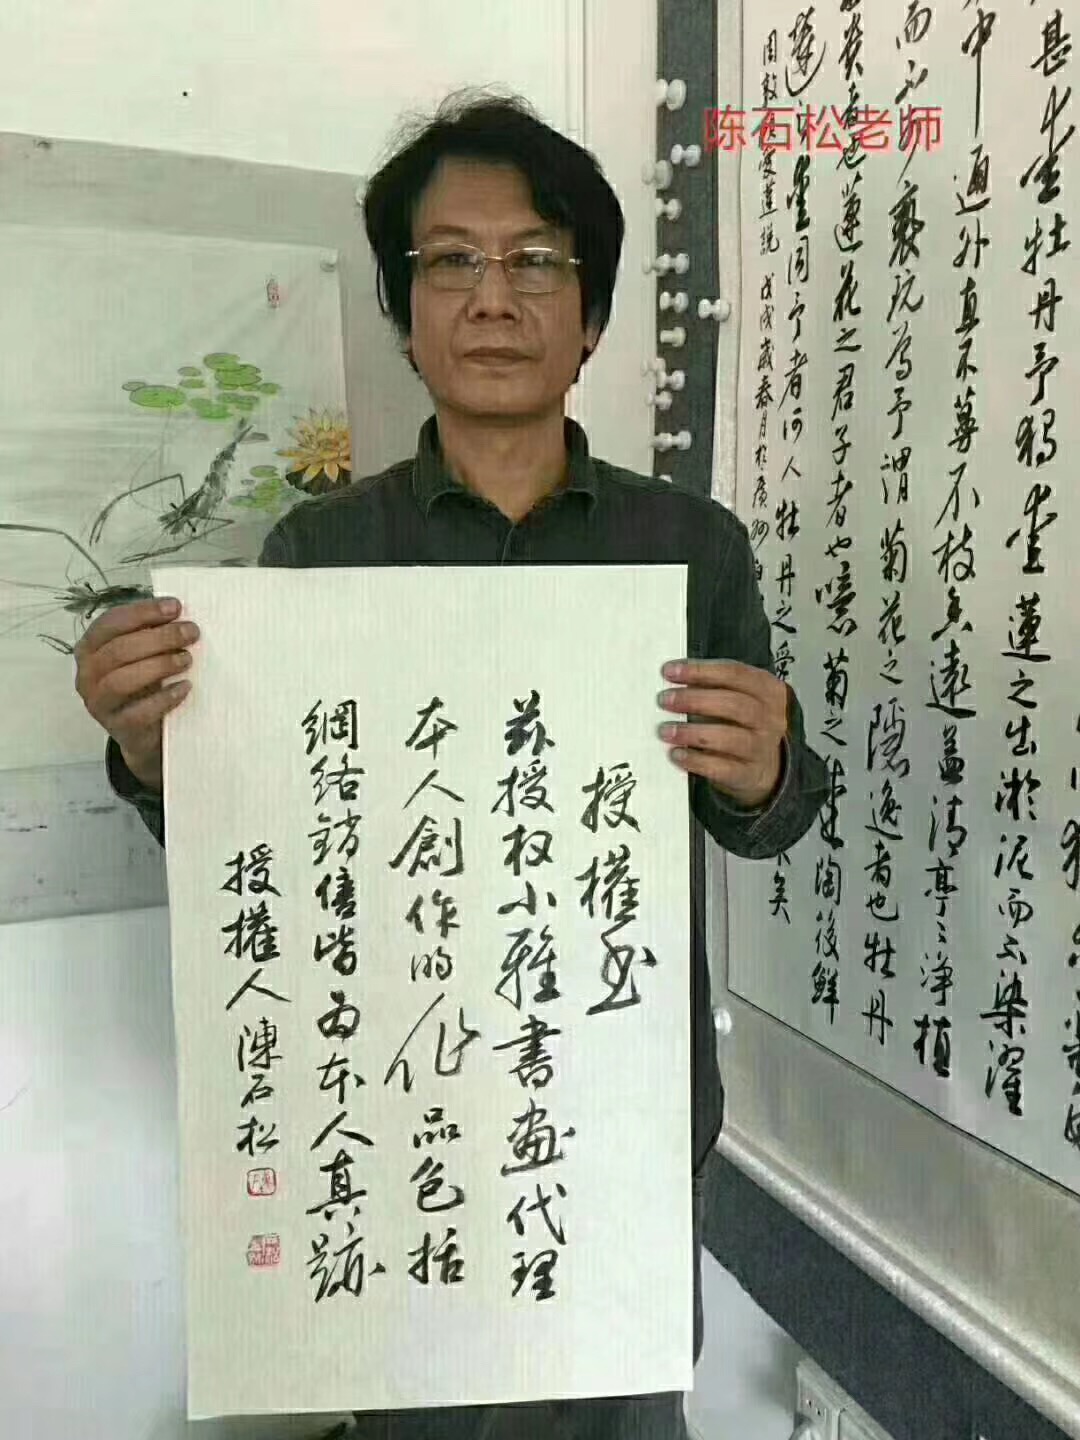 陈石松老师
授權書
茲授权小雅書畫代理
本人創作的作品包括
網络銷售皆为本人真跡
授權人陳石松
甚愛牡丹予獨愛蓮之出淤泥而不染濯
中通外直不蔓不枝香遠益清亭〻淨植
而不可褻玩焉予謂菊花之隱逸者也牡丹
蓮花之君子者也噫菊之愛陶後鮮
蓮之愛同予者何人牡丹之愛
周敦頤愛蓮說 戊戌歲春月於廣州